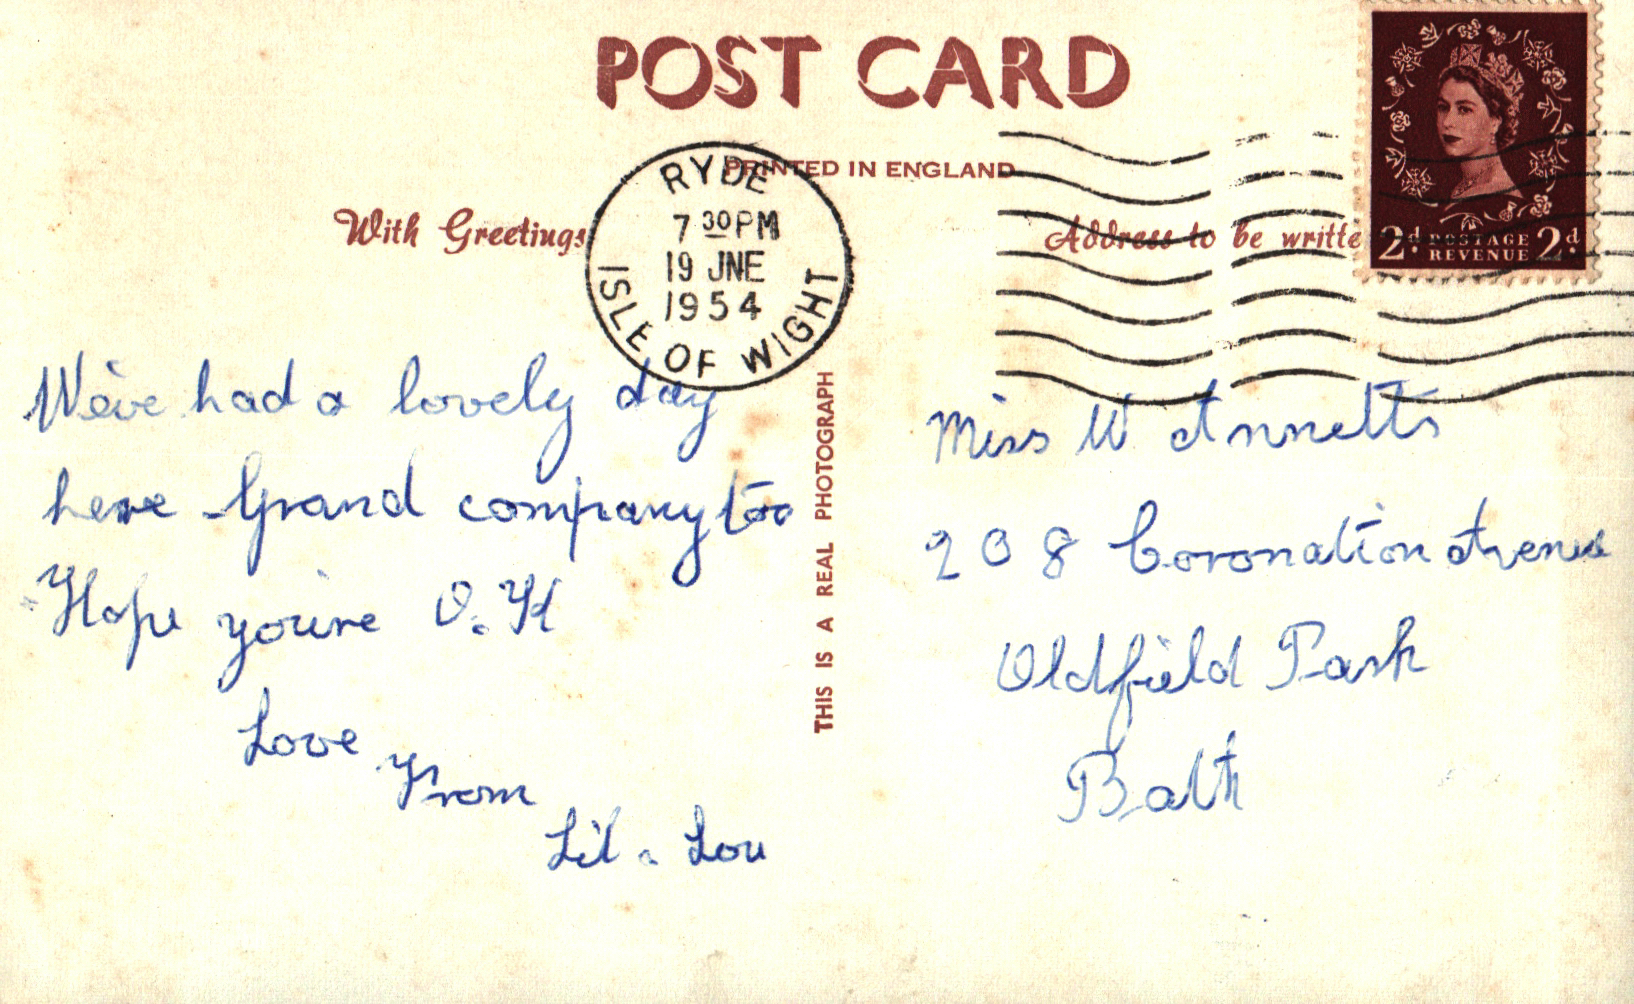 POST CARD
PRINTED IN ENGLAND
With Greetings
Address to be writte
RYDE
7 30 PM
19 JNE
1954
ISLE OF WIGHT
2d POSTAGE 2d
REVENUE
We've had a lovely day
here Grand company too
Hope you're O.K
Love
From
Lil & Lou
THIS IS A REAL PHOTOGRAPH
Miss W Annetts
208 Coronation Avenue
Oldfield Park
Bath